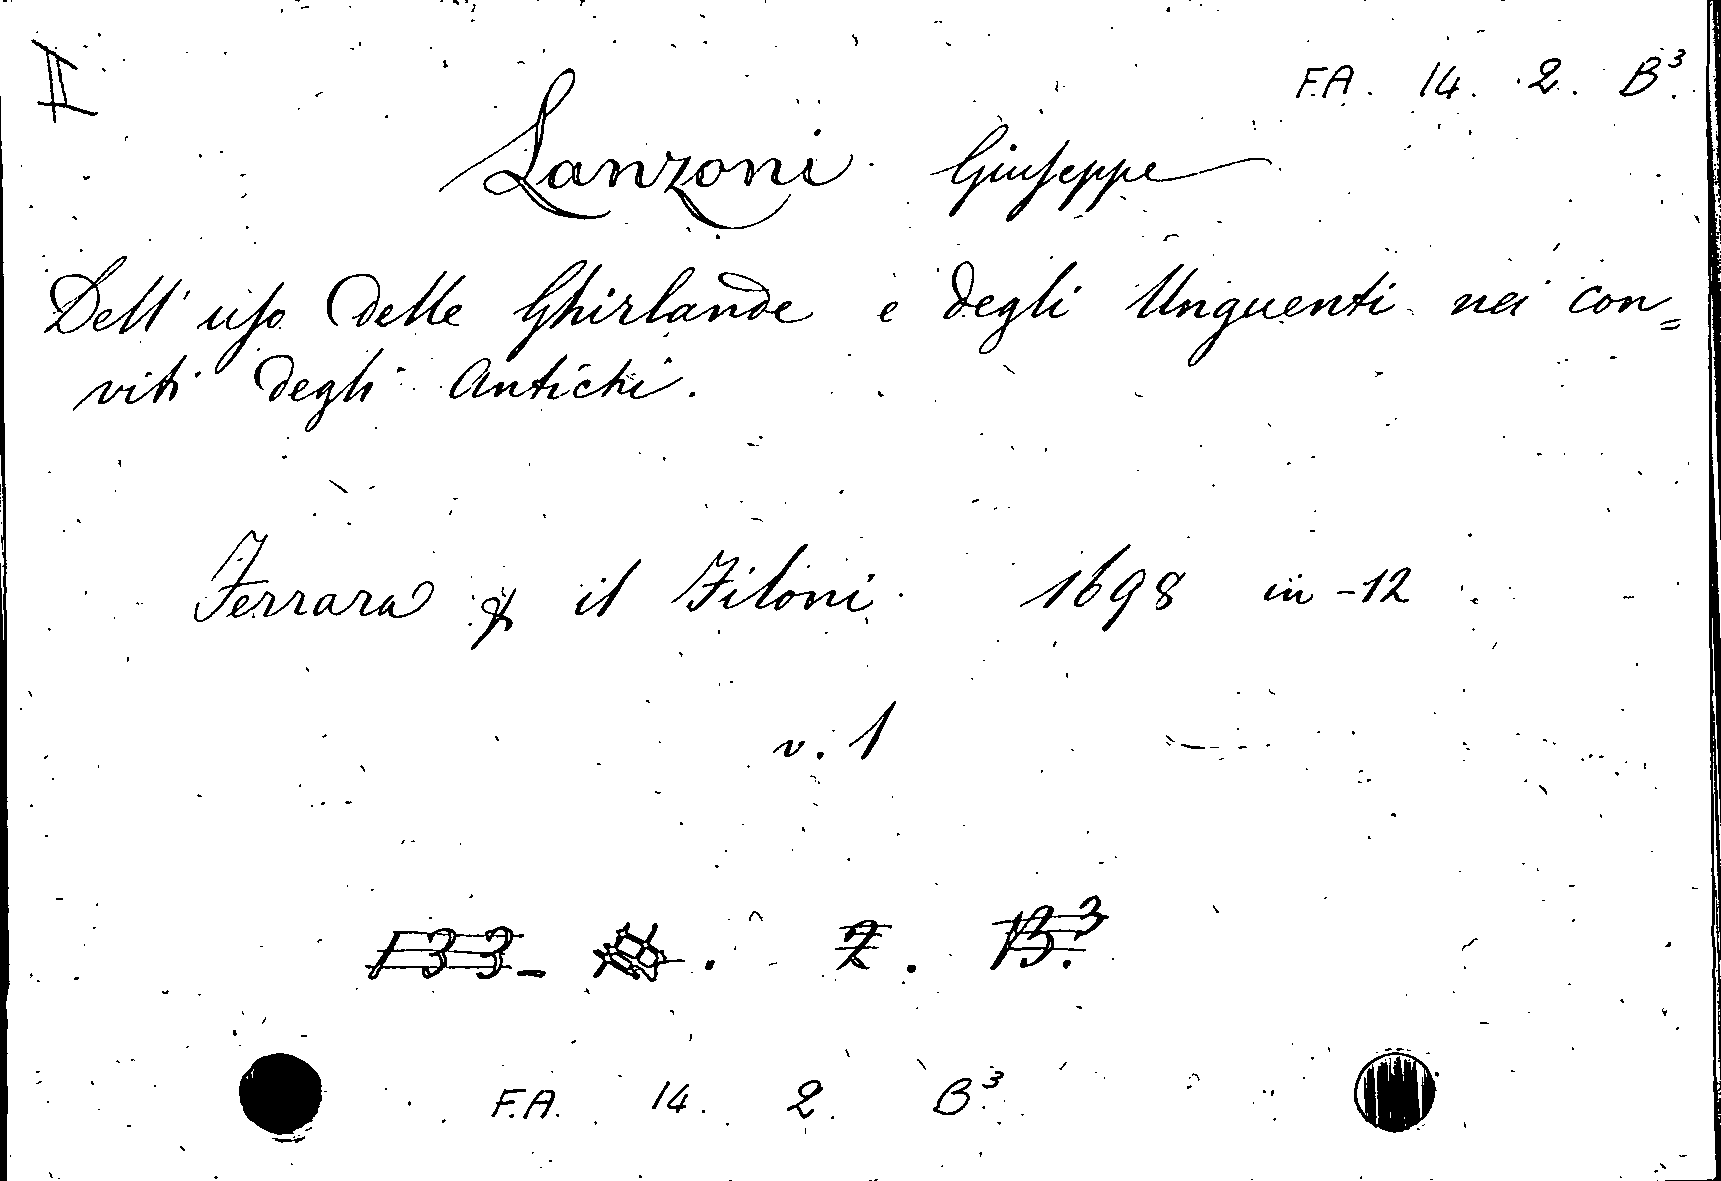 II
F.A. 14. 2. B³.
Lanzoni Giuseppe
Dell' uso delle Ghirlande e degli Unguenti nei con=
viti degli Antichi.
Ferrara p il Filoni 1698 in-12
v. 1
133- . 2. B³.
F.A. 14. 2. B³.